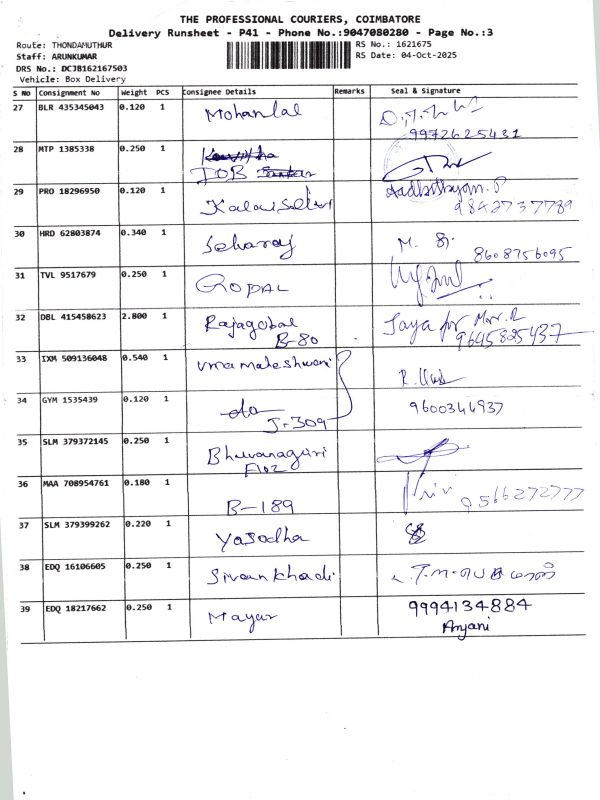 THE PROFESSIONAL COURIERS, COIMBATORE
Delivery Runsheet - P41 - Phone No.:9047080280 - Page No.:3
Route: THONDAMUTHUR RS No.: 1621675
Staff: ARUNKUMAR RS Date: 04-Oct-2025
DRS No.: DCJB162167503
Vehicle: Box Delivery
S No Consignment No Weight PCS Consignee Details Remarks Seal & Signature
27 BLR 435345043 0.120 1 Mohanlal
9972625431
28 MTP 1385338 0.250 1
IOB
29 PRO 18296950 0.120 1 Kalaiselvi Aadhithyan. P
9842737789
30 HRD 62803874 0.340 1 Selvaraj M.
8608756095
31 TVL 9517679 0.250 1 GOPAL
32 DBL 415458623 2.800 1 Rajagobal Jaya for
B-80 9645825437
33 IXM 509136048 0.540 1 Uma maheshwari
34 GYM 1535439 0.120 1 do 9600344937
J-309
35 SLM 379372145 0.250 1 Bhuvanagiri
F102
36 MAA 708954761 0.180 1
B-189 9566272777
37 SLM 379399262 0.220 1 Yasodha
38 EDQ 16106605 0.250 1 Sivan khadi
39 EDQ 18217662 0.250 1 Mayur 9994134884
Anjani